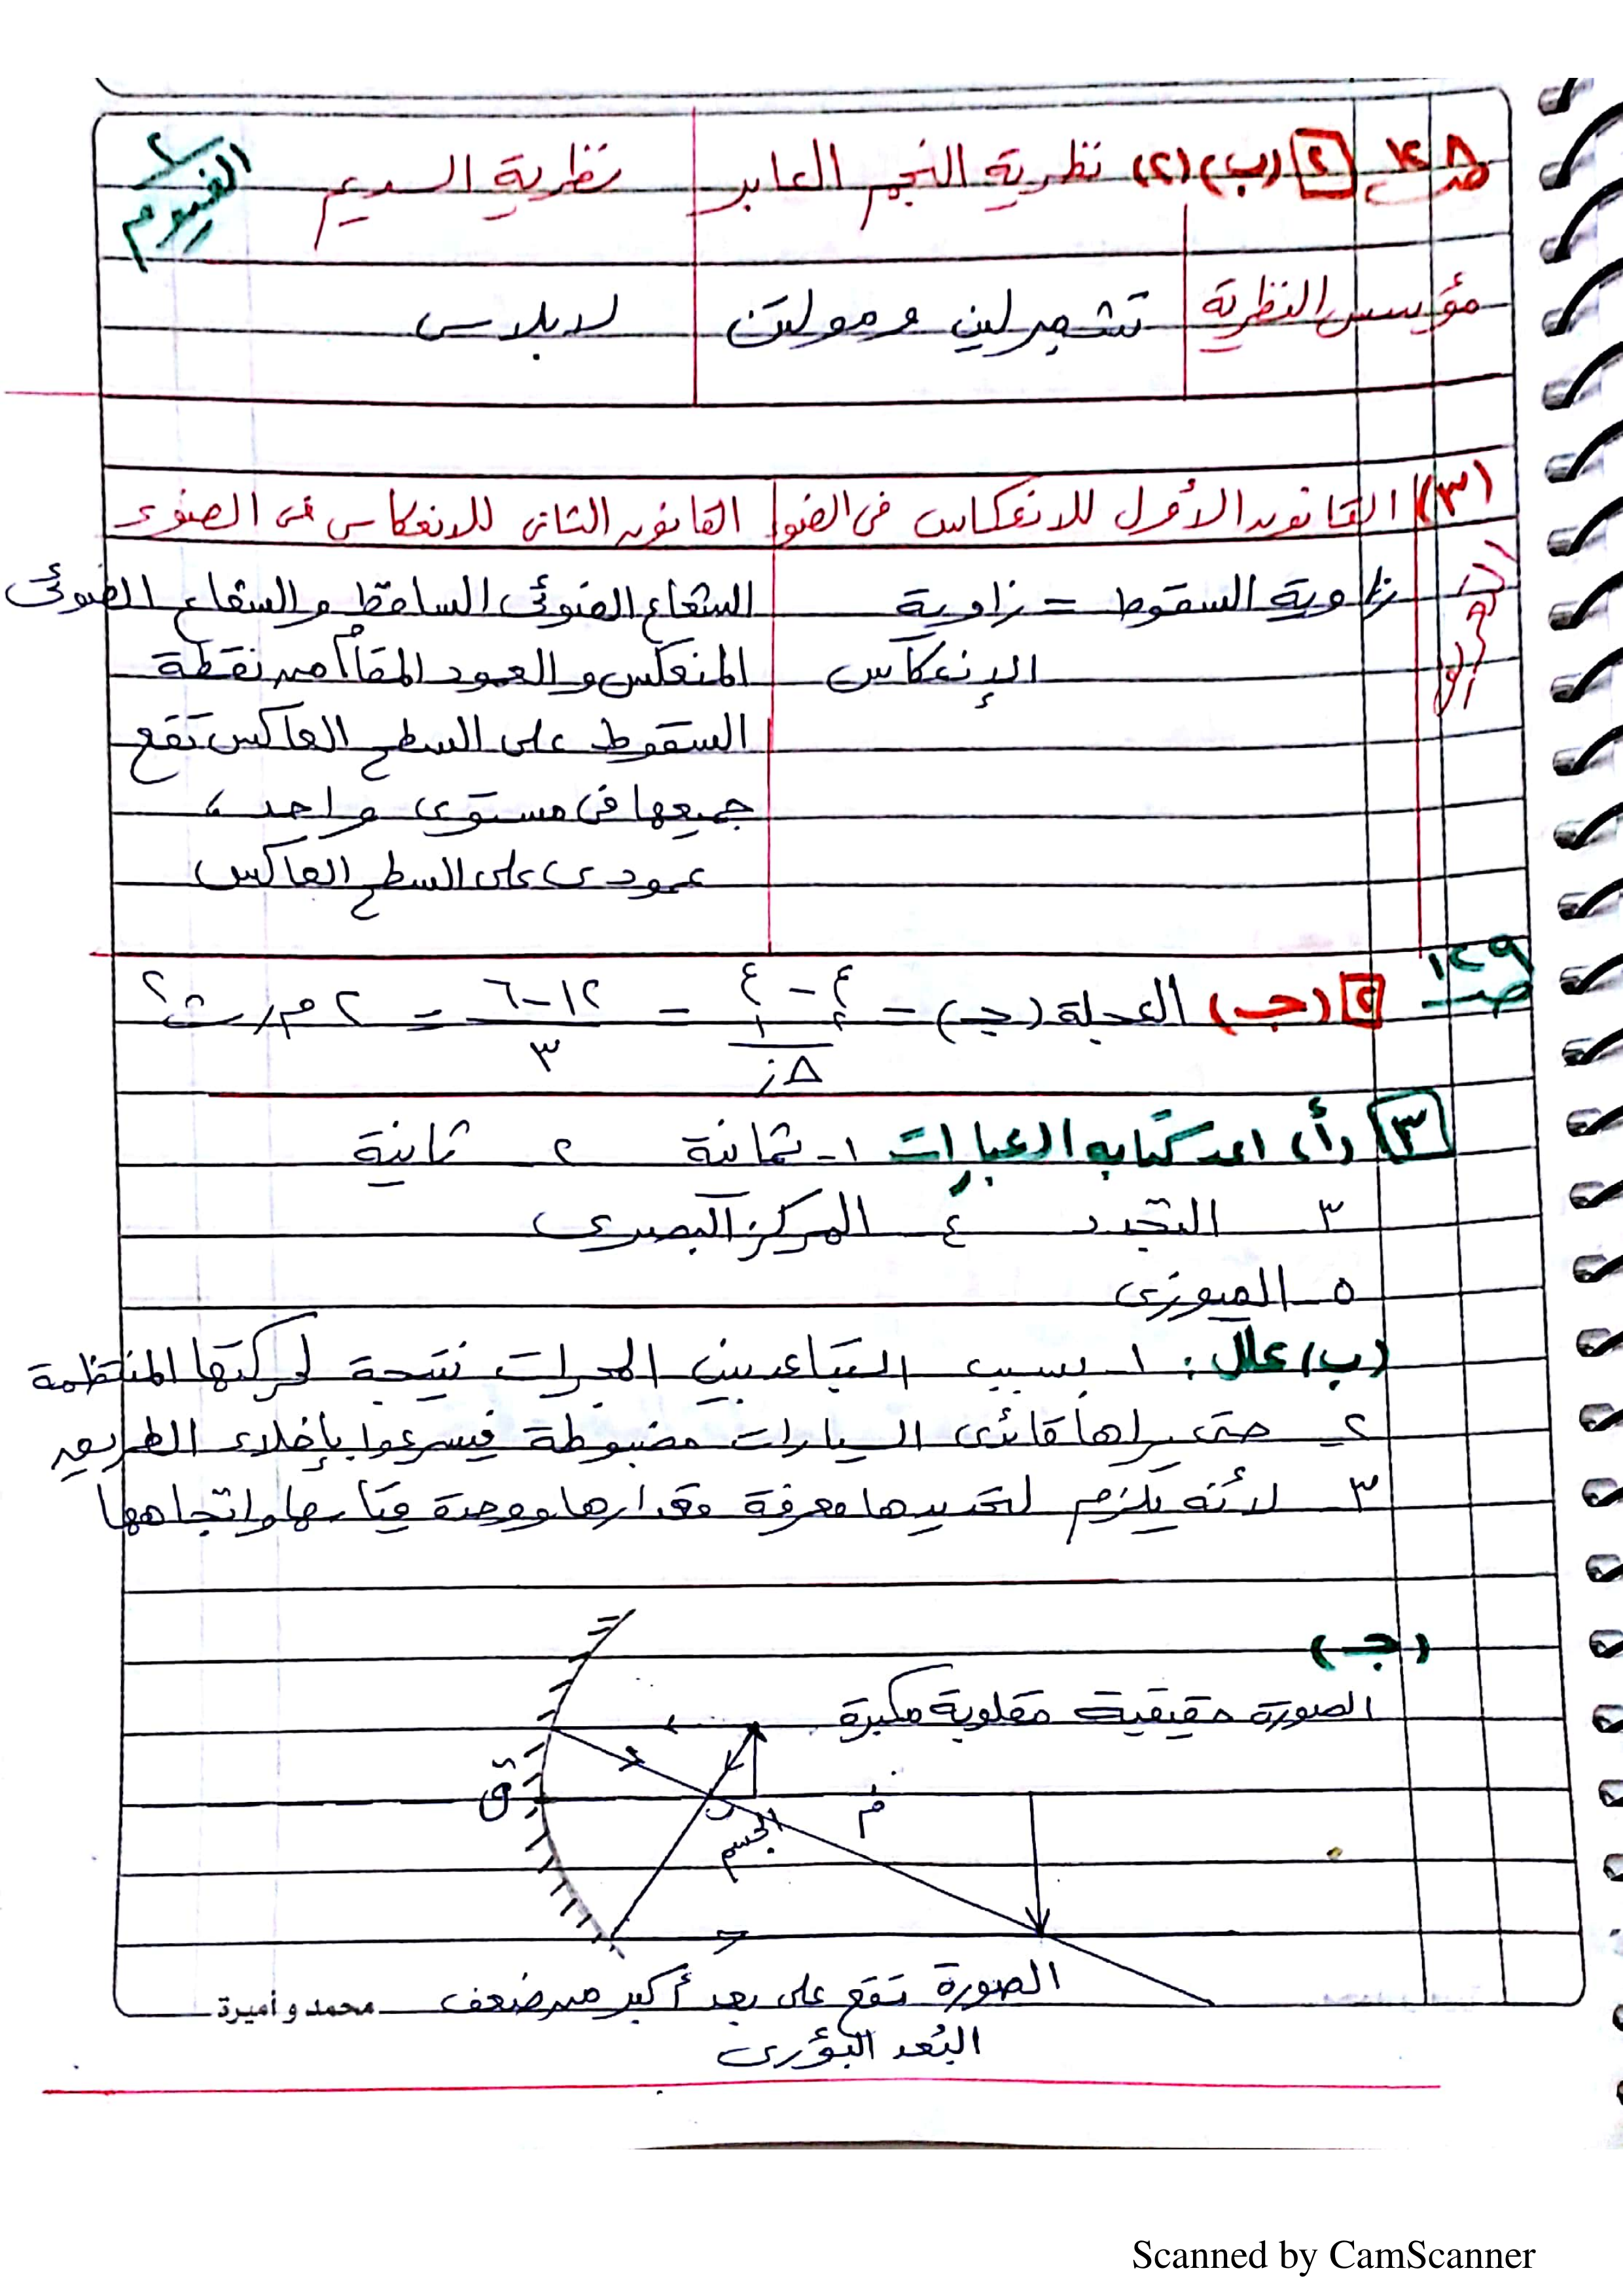 ص ١٢٨ [٢] (ب) (٢) نظرية النجم العابر نظرية السديم
الفيوم ٢
مؤسس النظرية تشمبرلين ومولتن لابلاس
(٣) القانون الأول للانعكاس فى الضوء القانون الثانى للانعكاس فى الضوء
زاوية السقوط = زاوية الشعاع الضوئى الساقط والشعاع الضوئى
الإنعكاس المنعكس والعمود المقام من نقطة
السقوط على السطح العاكس تقع
جميعها فى مستوى واحد
عمودى على السطح العاكس
ص ١٢٩
[٢] (جـ) العجلة (جـ) = ع٢ - ع١ / Δز = ١٢-٦ / ٣ = ٢ م/ث٢
[٣] (أ) اعد كتابه العبارات ١- ثمانة ٢- ثانية
٣- التجدد ٤- المركز البصرى
٥- الميوزى
(ب) علل : ١- بسبب التباعد بين المجرات نتيجة لحركتها المنتظمة
٢- حتى يراها قائدى السيارات مضبوطة فيسرعوا بإخلاء الطريق
٣- لأنه يلزم لتحديدها معرفة مقدارها ووحدة قياسها واتجاهها
(جـ)
الصورة حقيقية مقلوبة مكبرة
ق
م
ب
الجسم
الصورة تقع على بعد أكبر من ضعف
البُعد البؤرى
محمد و أميرة
Scanned by CamScanner